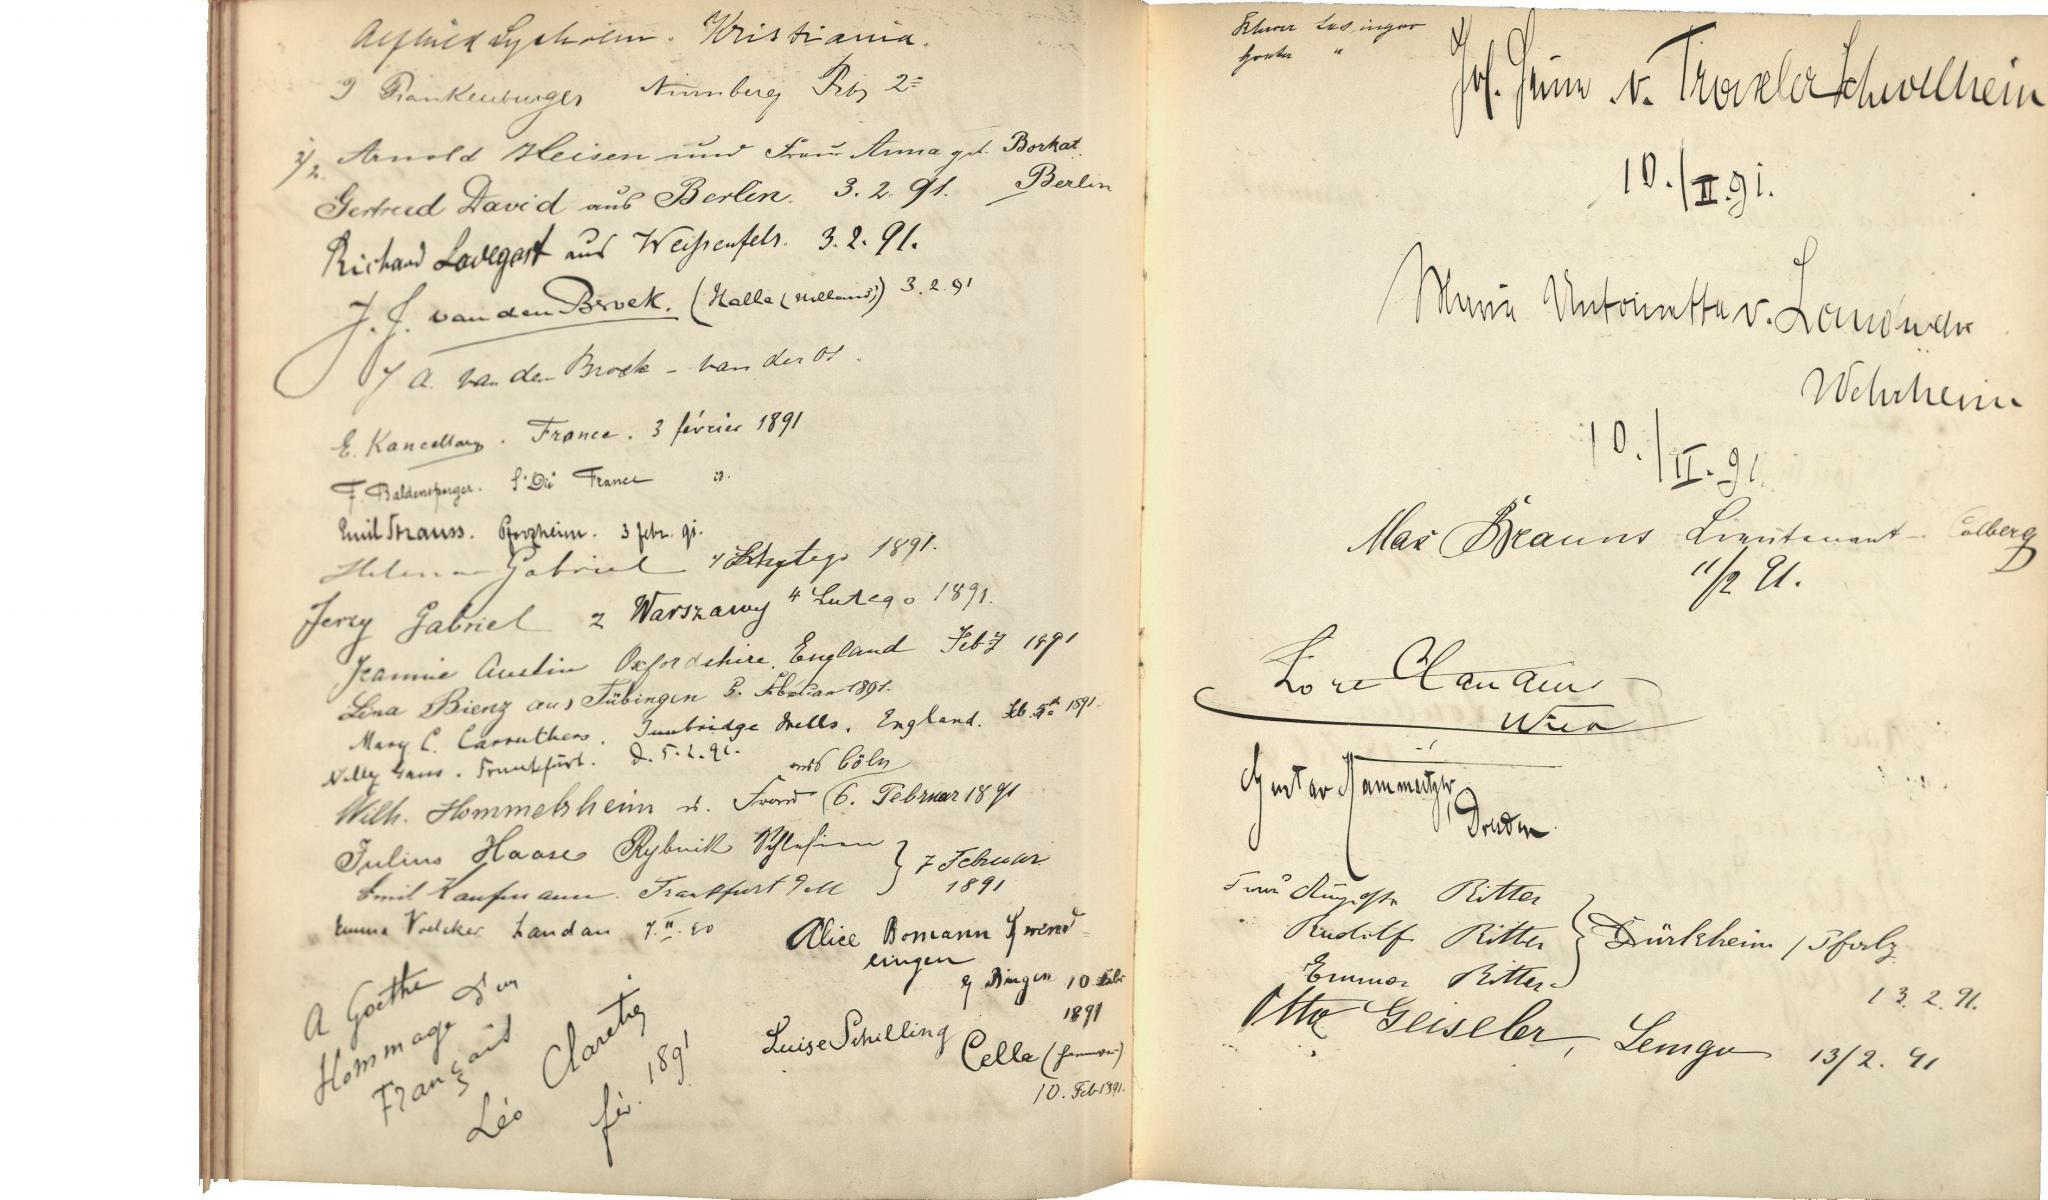 Kristiania.
Nürnberg Febr 2
2/2. Arnold Heisen und Frau Anna geb. Borkat.
Berlin
Gertrud David aus Berlin. 3. 2. 91.
Richard aus Weißenfels. 3. 2. 91.
J. J. van den Broek. (Halle (Holland)) 3. 2. 91
A. van den Broek - van der Os.
E. France. 3 février 1891
F. Baldensperger. St Dié France id.
Emil Strauss. Pforzheim. 3 febr. 91.
Helena Gabriel 4 Lutego 1891.
Jerzy Gabriel z Warszawy 4 Lutego 1891.
Jeannie Austin Oxfordshire. England Feb 1891
Lina Bienz aus Tübingen 5. Februar 1891.
Mary C. Carruthers. Tunbridge Wells. England. Feb. 5th 1891.
Nelly Gans. Frankfurt. d. 5. 2. 91.
aus Cöln
Wilh. Hommelsheim u. Frau 6. Februar 1891
Julius Haase Rybnik Schlesien
Emil Kaufmann. Frankfurt a/M
7 Februar
1891
Emma Voelcker Landau 7. II. 90
Alice Bomann
Bingen 10 Febr
1891
A Goethe
Hommage d'un
Français
Léo Claretie
fév. 1891
Luise Schilling Celle (Hannover)
10. Feb 1891.
"
Jos. v. Troxler
10./II. 91.
Marie Antoinette v.
Wehrheim
10./II. 91.
Max Brauns Lieutenant - Colberg
11/2 91.
Wien
Gustav
Dresden.
Frau Auguste Ritter
Rudolf Ritter
Emma Ritter
Dürkheim / Pfalz
13. 2. 91.
Otto Geiseler, Lemgo 13/2. 91